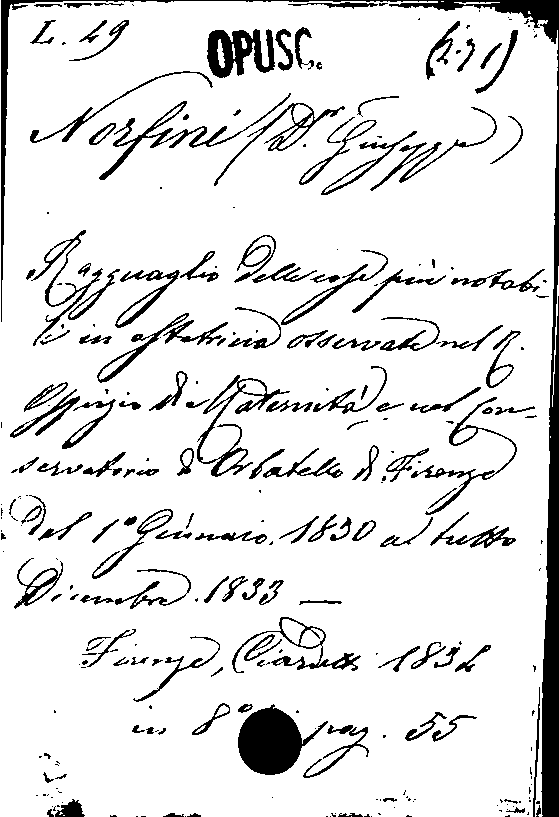 L. 49 OPUSC. (2.71)
Norfini (Dr. Giuseppe)
Ragguaglio delle cose più notabi-
li in ostetricia osservate nel R.
Ospizio di Maternità e nel Con-
servatorio d'Orbatello di Firenze
dal 1° Gennaio. 1830 a tutto
Dicembre. 1833 —
Firenze, Ciardetti 1834
in 8° di pag. 55